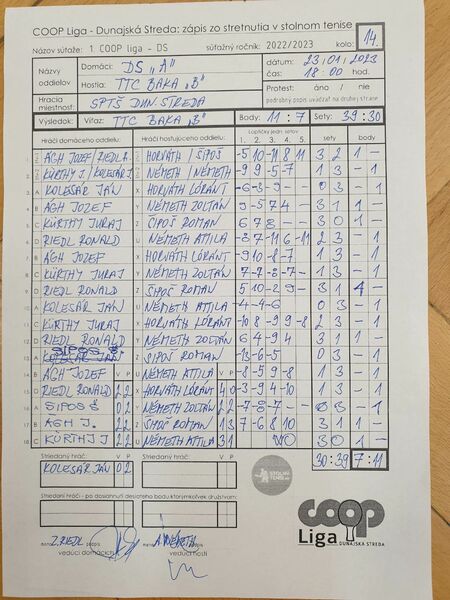 COOP Liga - Dunajská Streda: zápis zo stretnutia v stolnom tenise
Názov súťaže: 1. COOP liga - DS súťažný ročník 2022/2023 kolo: 14.
Názvy oddielov Domáci: DS „A" dátum: 23/01/2023
Hostia: TTC BAKA „B" čas: 18:00 hod.
Hracia miestnosť: SPTŠ DUN. STREDA Protest: áno / nie
podrobný popis uvádzať na druhej strane
Výsledok: Víťaz: TTC BAKA „B" Body: 11:7 Sety: 39:30
Hráči domáceho oddielu: Hráči hosťujúceho oddielu: Loptičky jedn. setov sety body
1. 2. 3. 4. 5.
ÁGH JOZEF/RIEDL R. HORVÁTH/ŠIPOŠ -5 10 -11 8 11 3 2 1 -
KÜRTHY J/KOLESÁR J NÉMETH/NÉMETH -9 9 -5 -7 1 3 - 1
KOLESÁR JÁN X HORVÁTH LÓRÁNT -6 -3 -9 - - 0 3 - 1
B ÁGH JOZEF Y NÉMETH ZOLTÁN 9 -5 7 4 - 3 1 1 -
C KÜRTHY JURAJ Z ŠIPOŠ ROMAN 6 7 8 - - 3 0 1 -
D RIEDL RONALD U NÉMETH ATTILA -8 7 -11 6 -11 2 3 - 1
B ÁGH JOZEF X HORVÁTH LÓRÁNT -9 10 -8 -7 1 3 - 1
C KÜRTHY JURAJ Y NÉMETH ZOLTÁN 7 -7 -8 -7 - 1 3 - 1
D RIEDL RONALD Z ŠIPOŠ ROMAN 5 10 -2 9 - 3 1 1 -
A KOLESÁR JÁN U NÉMETH ATTILA -4 -4 -6 0 3 - 1
C KÜRTHY JURAJ X HORVÁTH LÓRÁNT -10 8 -9 9 -8 2 3 - 1
D RIEDL RONALD Y NÉMETH ZOLTÁN 6 4 -9 4 3 1 1 -
A SIPOS Š Z ŠIPOŠ ROMAN -13 -6 -5 0 3 - 1
B ÁGH JOZEF V P U NÉMETH ATTILA V P -8 -5 9 -8 1 3 - 1
D RIEDL RONALD 2 2 X HORVÁTH LÓRÁNT 4 0 -3 -9 4 -10 1 3 - 1
A SIPOS Š 0 1 Y NÉMETH ZOLTÁN 2 2 -7 -8 -7 - - 0 3 - 1
B ÁGH J. 2 2 Z ŠIPOŠ ROMAN 1 3 7 -6 8 10 3 1 1 -
C KÜRTHY J 2 2 U NÉMETH ATTILA 3 1 WO 3 0 1 -
Striedaný hráč: V P Striedaný hráč: V P 30:39 7:11
KOLESÁR JÁN 0 2
STOLNÝ TENIS
Striedaní hráči - po dosiahnutí desiateho bodu ktorýmkoľvek družstvom:
COOP
Liga DUNAJSKÁ STREDA
Z. RIEDL podpis A. NÉMETH podpis
vedúci domácich vedúci hostí